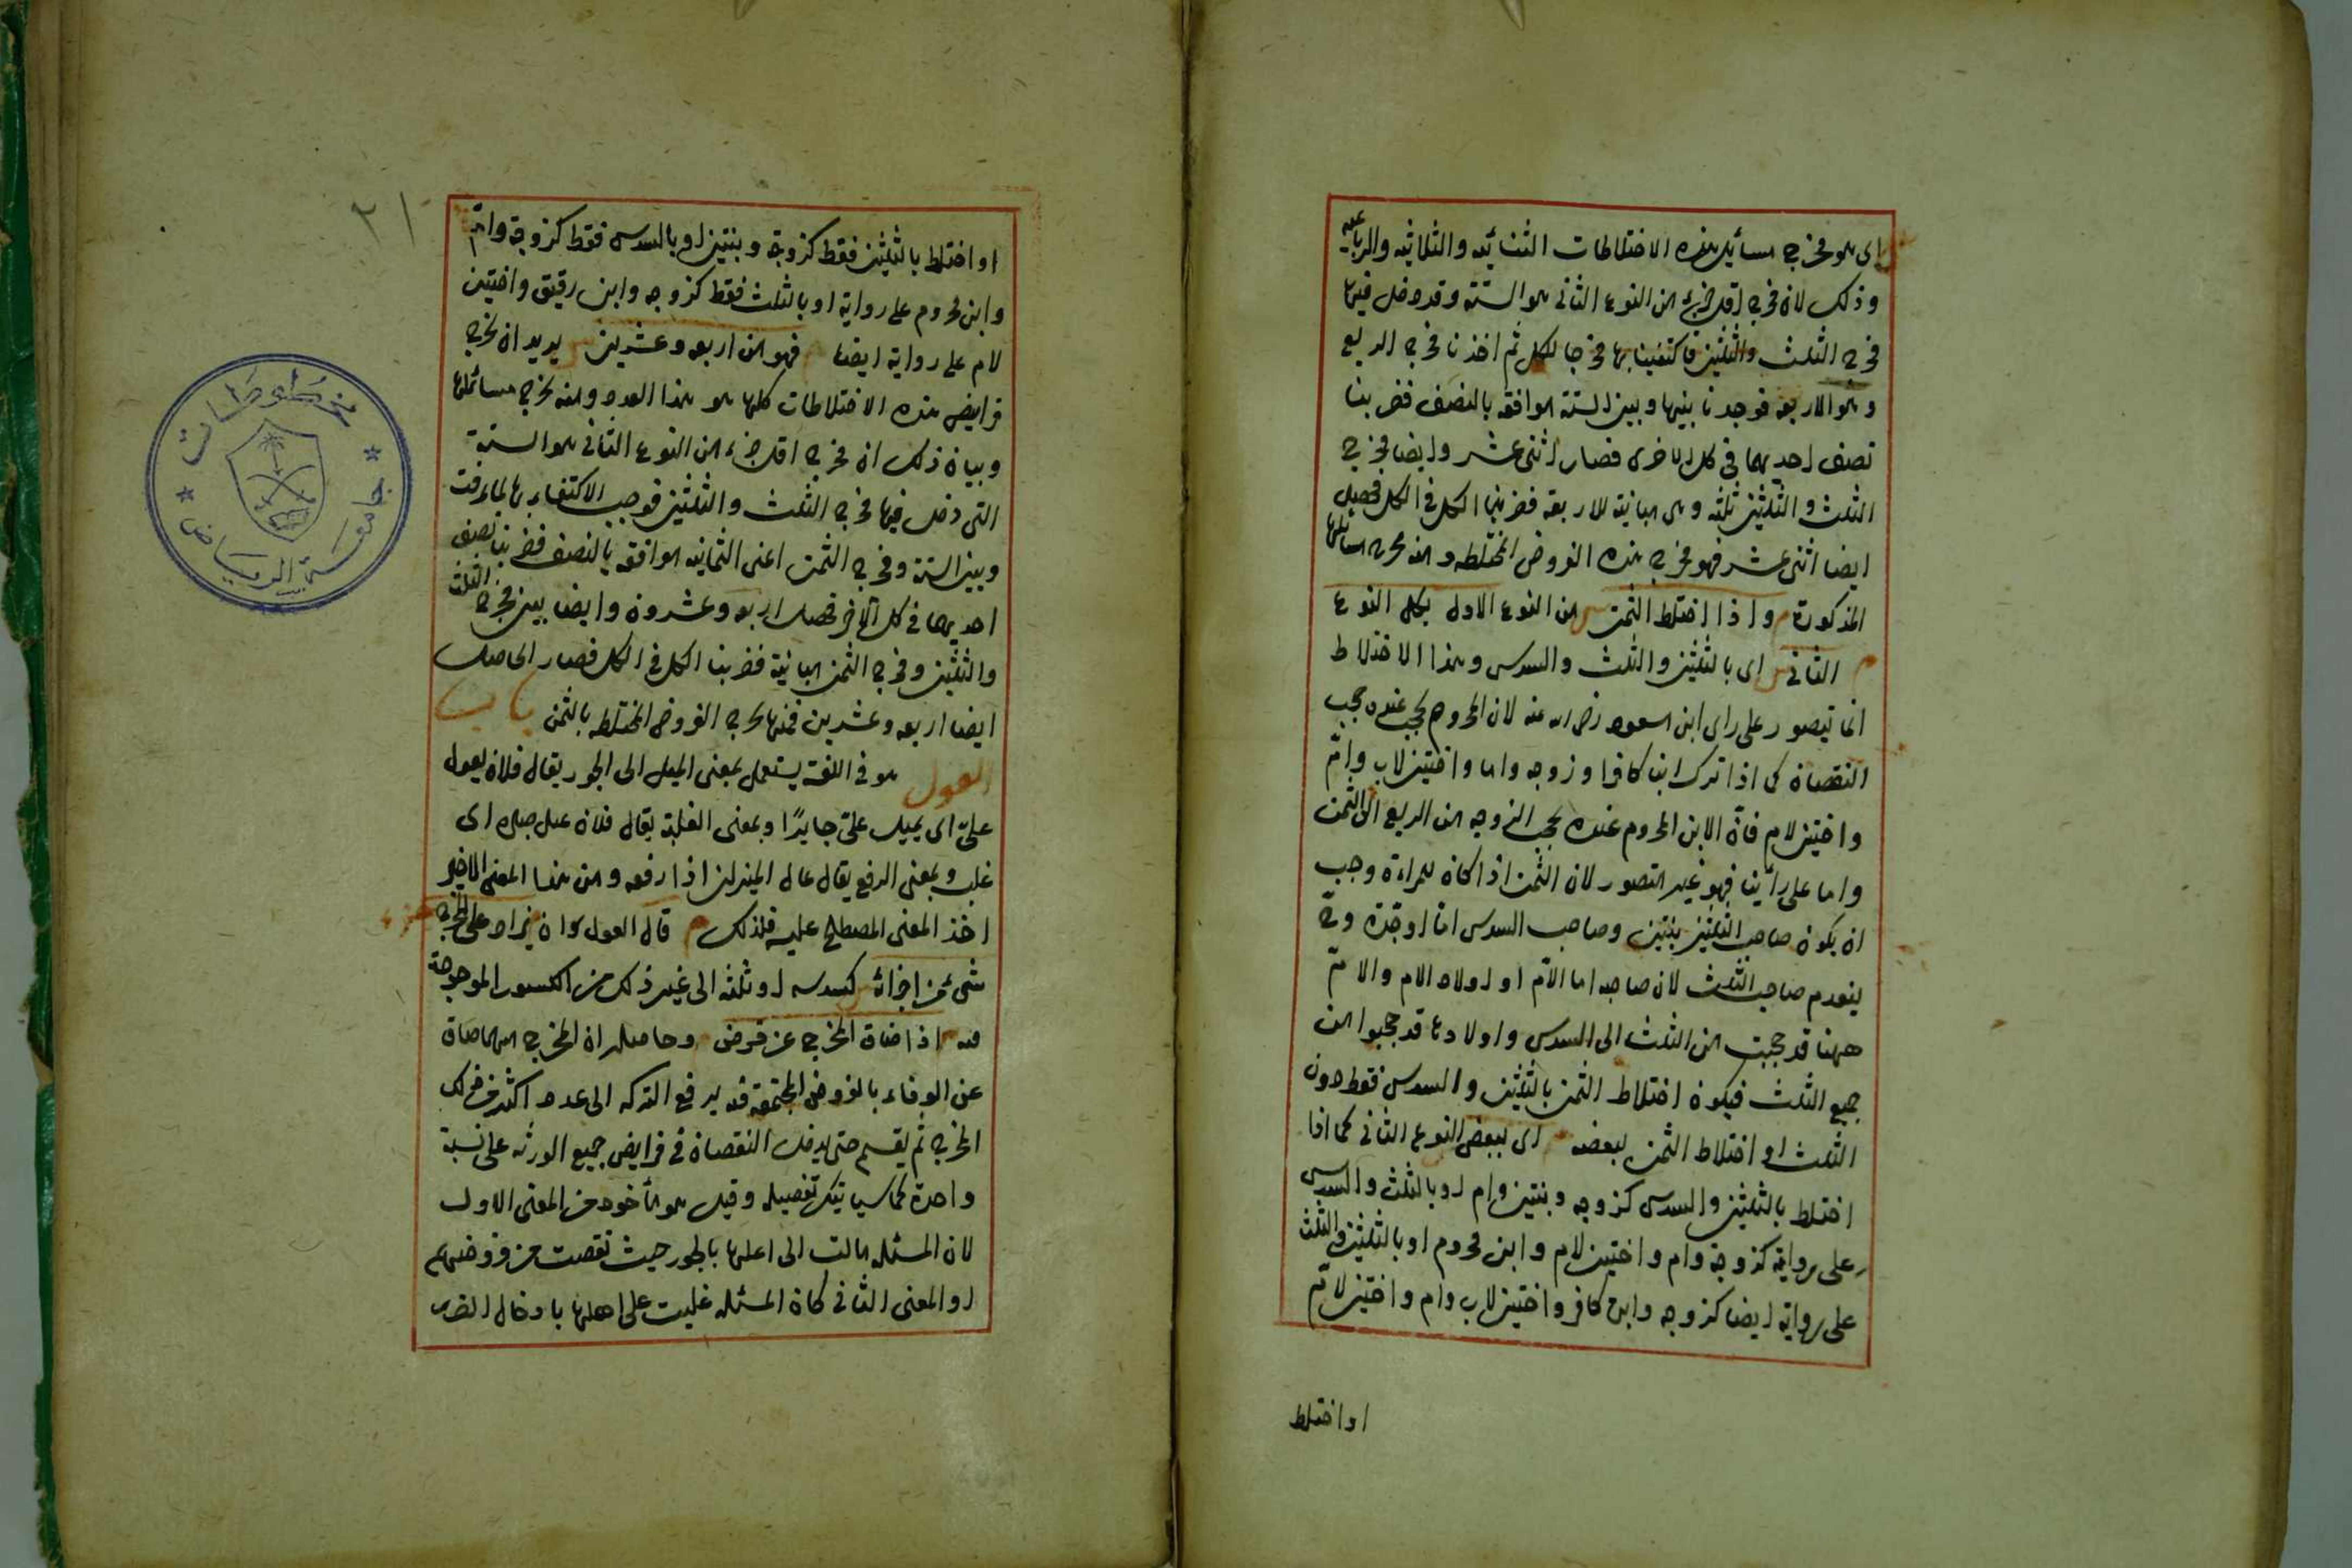 اى هو مخرج مسائل هذه الاختلاطات الثنائيه والثلاثيه والرباعيه
وذلك لان مخرج اقل جزء من النوع الثانى هو الستة وقد دخل فيها
مخرج الثلث والثلثين فاكتفينا بها مخرجا للكل ثم اخذنا مخرج الربع
وهو الاربعه فوجدنا بينها وبين الستة موافقه بالنصف فضربنا
نصف احديهما فى كل الاخرى فصار اثنى عشر وايضا مخرج
الثلث والثلثين ثلثه وهى مباينة للاربعة فضربنا الكل فى الكل فحصل
ايضا اثنى عشر فهو مخرج هذه الفروض المختلطه ومنه مخرج مسائلها
المذكورة م واذا اختلط الثمن ش من النوع الاول بكل النوع
م الثانى ش اى بالثلثين والثلث والسدس وهذا الاختلاط
انما يتصور على راى ابن مسعود رضى الله عنه لان المحروم يحجب عنده حجب
النقصان كما اذا ترك ابنا كافرا وزوجه واما واختين لاب وام
واختين لام فان الابن المحروم عنده يحجب الزوجه من الربع الى الثمن
واما على رأينا فهو غير متصور لان الثمن اذا كان للمراة وجب
ان يكون صاحب الثلثين بنتين وصاحب السدس اما او جدة وح
ينعدم صاحب الثلث لان صاحبه اما الام او اولاد الام والام
ههنا قد حجبت من الثلث الى السدس واولادها قد حجبوا من
جميع الثلث فيكون اختلاط الثمن بالثلثين والسدس فقط دون
الثلث او اختلاط الثمن ببعضه اى ببعض النوع الثانى كما اذا
اختلط بالثلثين والسدس كزوجه وبنتين وام او بالثلث والسدس
على رواية كزوجة وام واختين لام وابن محروم او بالثلثين والثلث
على رواية ايضا كزوجه وابن كافر واختين لاب وام واختين لام
او اختلط
٢١
او اختلط بالثلثين فقط كزوجة وبنتين او بالسدس فقط كزوجة وام
وابن محروم على رواية او بالثلث فقط كزوجه وابن رقيق واختين
لام على رواية ايضا فهو من اربعه وعشرين يريد ان مخرج
فرايض هذه الاختلاطات كلها هو هذا العدد ومنه مخرج مسائلها
وبيان ذلك ان مخرج اقل جزء من النوع الثانى هو الستة
التى دخل فيها مخرج الثلث والثلثين فوجب الاكتفاء بها لما عرفت
وبين الستة ومخرج الثمن اعنى الثمانيه موافقه بالنصف فضربنا نصف
احديهما فى كل الاخر فحصل اربعه وعشرون وايضا بين مخرج الثلث
والثلثين ومخرج الثمن مباينة فضربنا الكل فى الكل فصار الحاصل
ايضا اربعه وعشرين فمنها مخرج الفروض المختلطه بالثمن باب
العول هو فى اللغة يستعمل بمعنى الميل الى الجور يقال فلان يعول
علىّ اى يميل علىّ جايرًا وبمعنى الغلبة يقال فلان عيل صبره اى
غلب وبمعنى الرفع يقال عال الميزان اذا رفعه ومن هذا المعنى الاخير
اخذ المعنى المصطلح عليه فلذلك م قال العول ان يزاد على المخرج
شئ من اجزائه كسدسه او ثلثه الى غير ذلك من الكسور الموجودة
فيه اذا ضاق المخرج عن فرض وحاصله ان المخرج مهما ضاق
عن الوفاء بالفروض المجتمعة فيه يرفع التركه الى عدد اكثر من ذلك
المخرج ثم يقسم حتى يدخل النقصان فى فرايض جميع الورثه على نسبة
واحدة كما سياتيك تفصيله وقيل هو مأخوذ من المعنى الاول
لان المسئله مالت الى اهلها بالجور حيث نقصت من فروضهم
او المعنى الثانى كان المسئله غلبت على اهلها بادخال الضرر
مخطوطات
جامعة الرياض